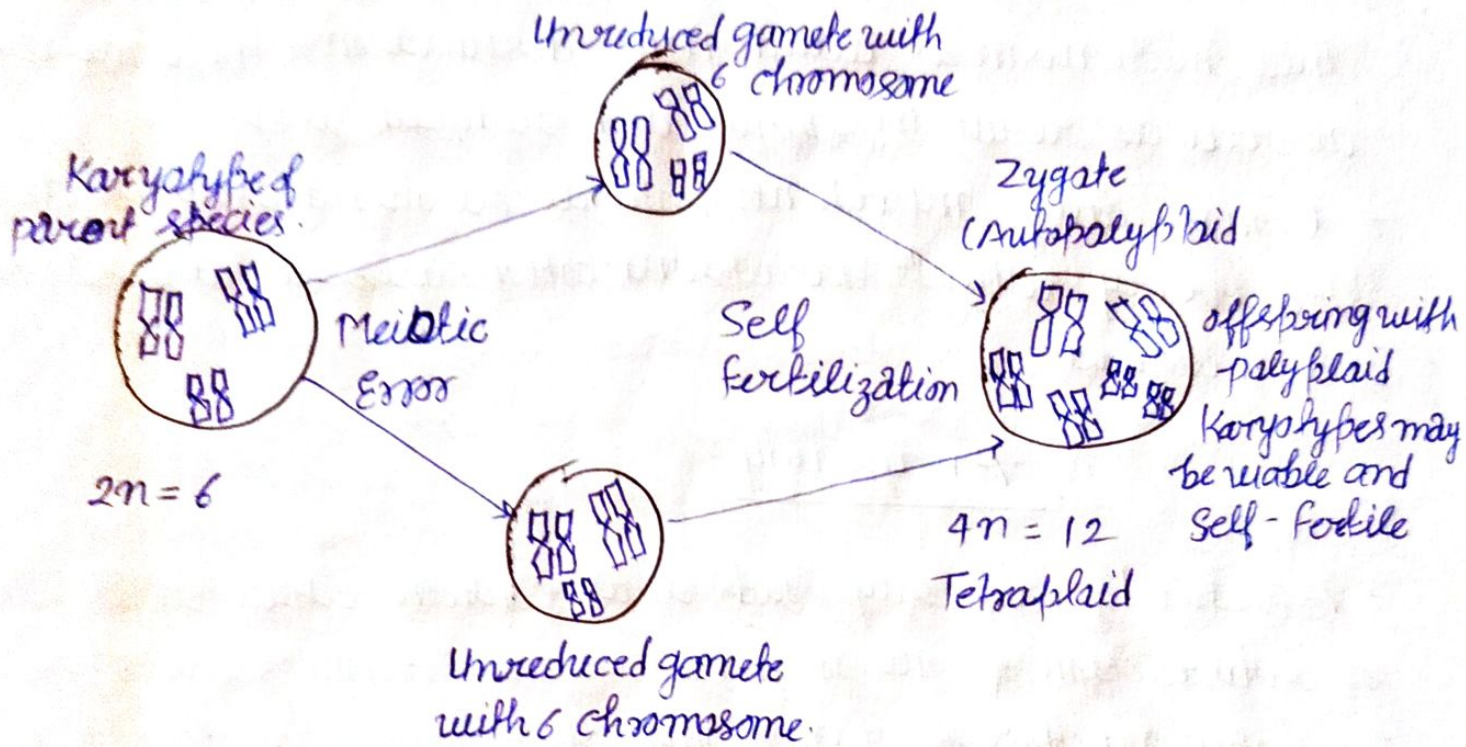 Unreduced gamete with
6 chromosome
Karyotype of
parent species.
Meiotic
Error
2n = 6
Self
fertilization
Zygate
(Autopolyploid
offspring with
polyploid
Karyotypes may
be viable and
Self - fertile
4n = 12
Tetraploid
Unreduced gamete
with 6 chromosome.